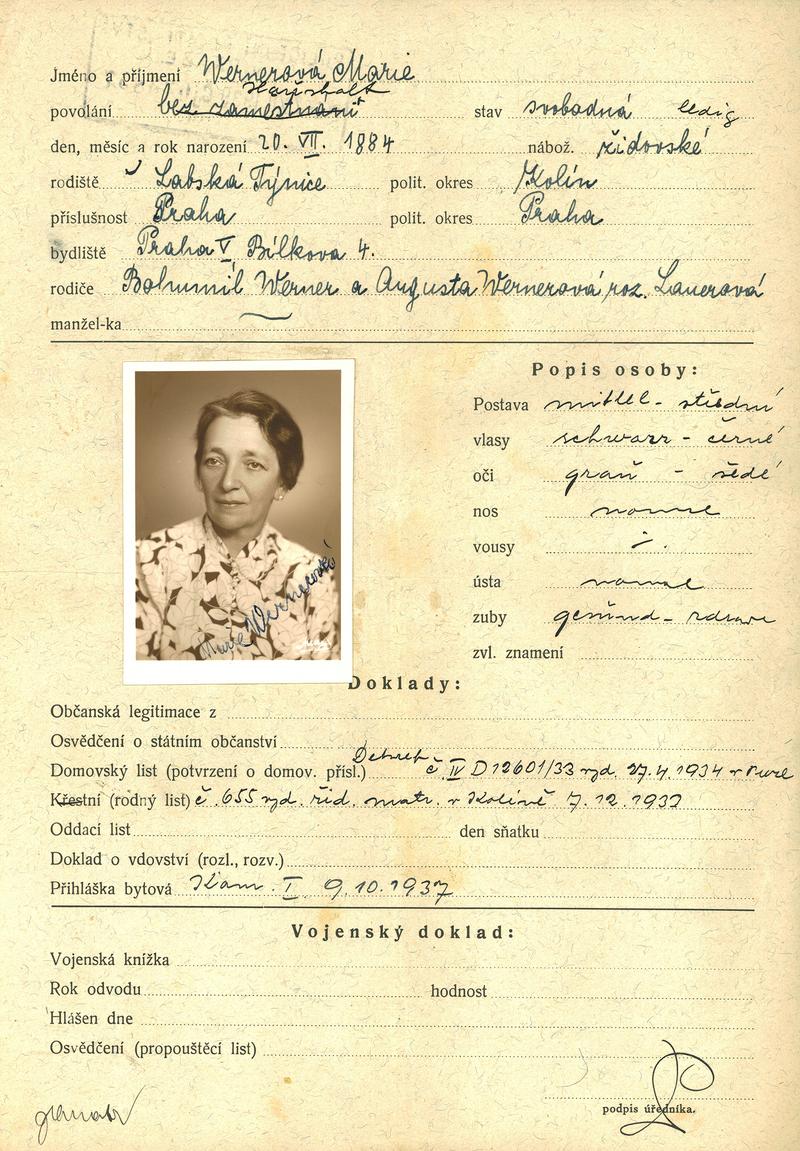 Jméno a příjmení Wernerová Marie
Haushalt
povolání bez zaměstnání stav svobodná ledig
den, měsíc a rok narození 20. VII. 1884 nábož. židovské
rodiště Labská Týnice polit. okres Kolín
příslušnost Praha polit. okres Praha
bydliště Praha V Bílkova 4.
rodiče Bohumil Werner a Augusta Wernerová roz. Lauerová
manžel-ka
Popis osoby:
Postava mittel - střední
vlasy schwarz - černé
oči grau - šedé
nos
vousy
ústa
zuby gesund - zdravé
zvl. znamení
Marie Wernerová
Doklady:
Občanská legitimace z
Osvědčení o státním občanství
Domovský list (potvrzení o domov. přísl.) č. IV D 12601/33 vyd. 27.4.1934 v
Křestní (rodný list) č. 655 vyd. žid. matr. v Kolíně 7.12.1933
Oddací list den sňatku
Doklad o vdovství (rozl., rozv.)
Přihláška bytová Kom. I 9.10.1937
Vojenský doklad:
Vojenská knížka
Rok odvodu hodnost
Hlášen dne
Osvědčení (propouštěcí list)
podpis úředníka.